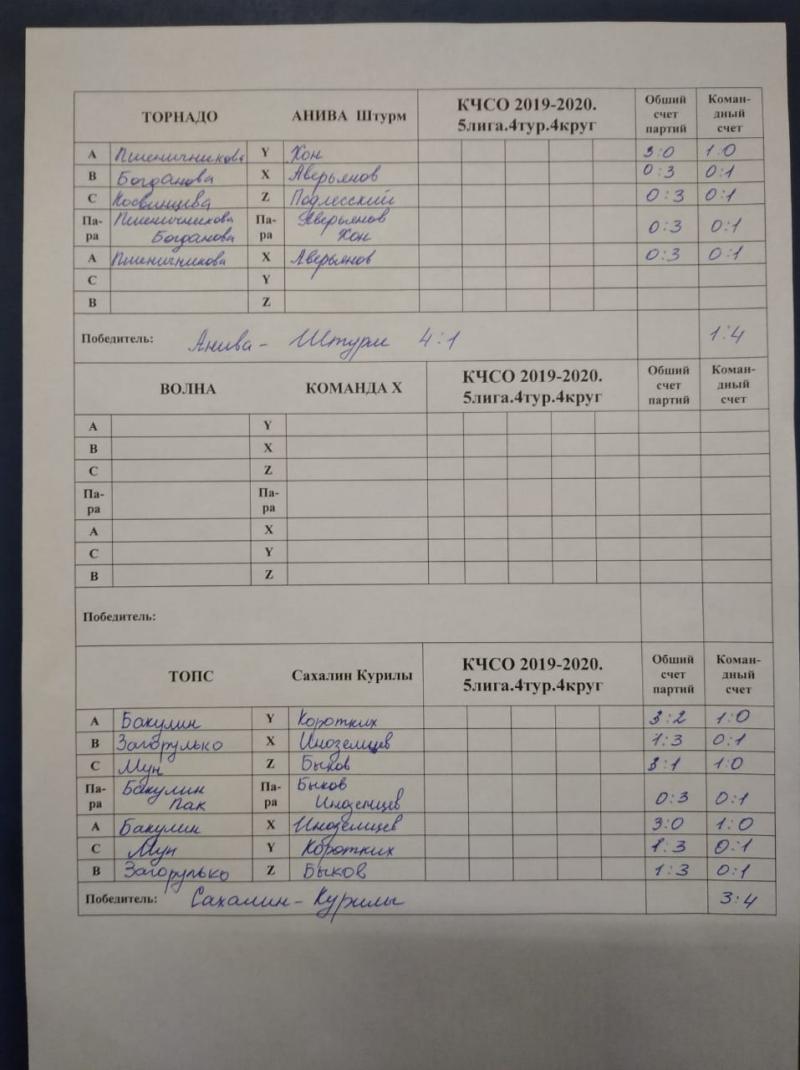 ТОРНАДО АНИВА Штурм КЧСО 2019-2020. 5лига.4тур.4круг Общий счет партий Коман-дный счет
A Пшеничникова Y Хон 3:0 1:0
B Богданова X Аверьянов 0:3 0:1
C Косвинцева Z Подлесский 0:3 0:1
Па-ра Пшеничникова Богданова Па-ра Аверьянов Хон 0:3 0:1
A Пшеничникова X Аверьянов 0:3 0:1
C Y
B Z
Победитель: Анива - Штурм 4:1 1:4
ВОЛНА КОМАНДА X КЧСО 2019-2020. 5лига.4тур.4круг Общий счет партий Коман-дный счет
A Y
B X
C Z
Па-ра Па-ра
A X
C Y
B Z
Победитель:
ТОПС Сахалин Курилы КЧСО 2019-2020. 5лига.4тур.4круг Общий счет партий Коман-дный счет
A Бакулин Y Коротких 3:2 1:0
B Загорулько X Иноземцев 1:3 0:1
C Мун Z Быков 3:1 1:0
Па-ра Бакулин Пак Па-ра Быков Иноземцев 0:3 0:1
A Бакулин X Иноземцев 3:0 1:0
C Мун Y Коротких 1:3 0:1
B Загорулько Z Быков 1:3 0:1
Победитель: Сахалин - Курилы 3:4